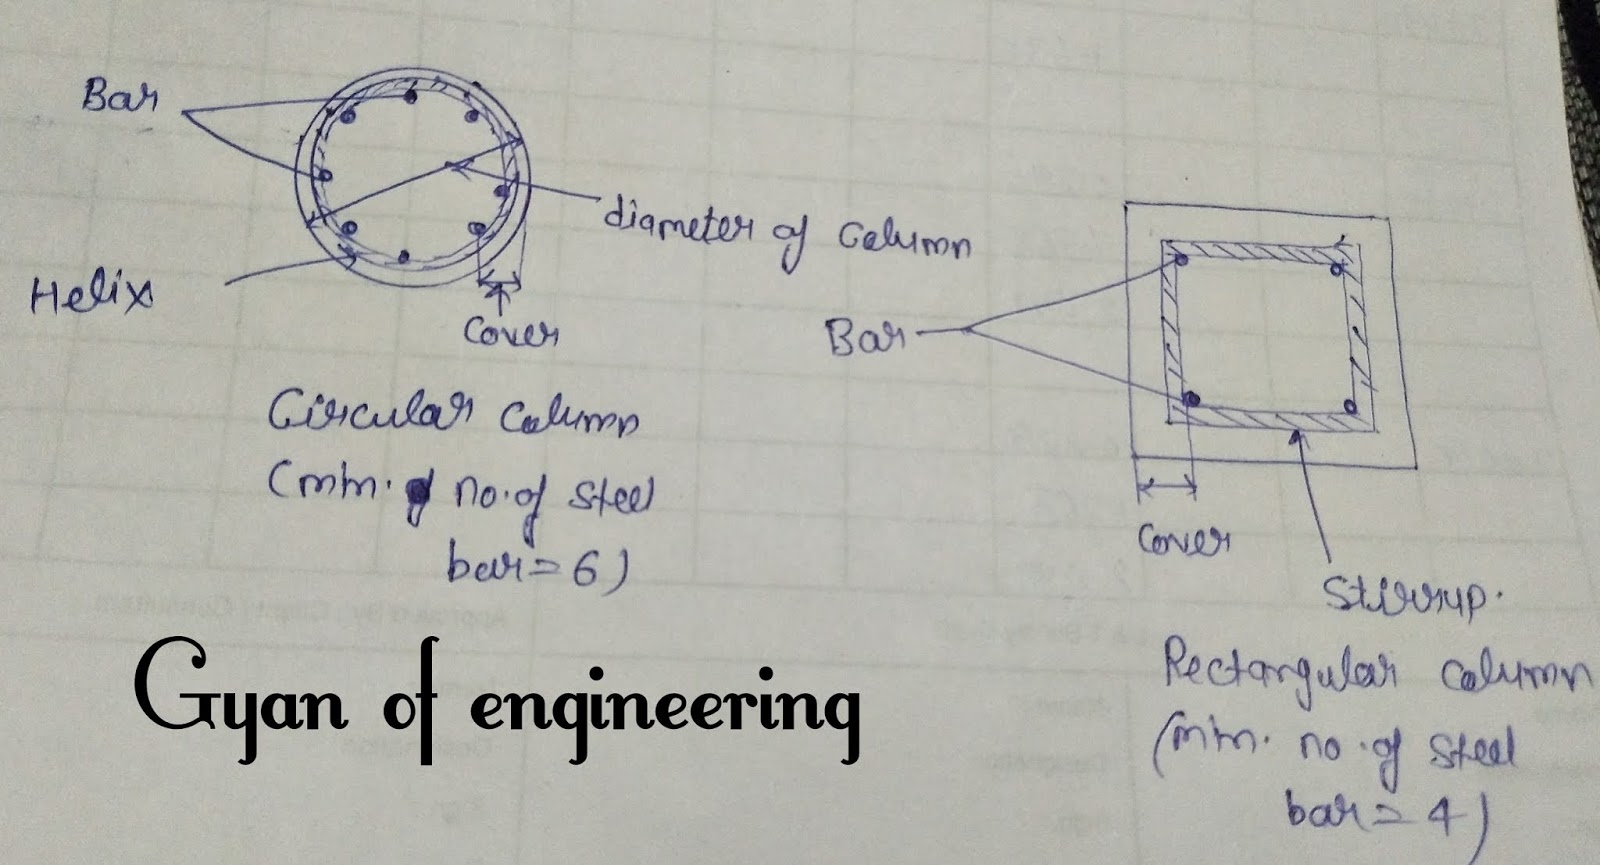 Bar
diameter of Column
Helix
Cover
Circular Column
(min. no. of steel
bar = 6)
Bar
Cover
Stirrup.
Rectangular Column
(min. no. of steel
bar = 4)
Gyan of engineering